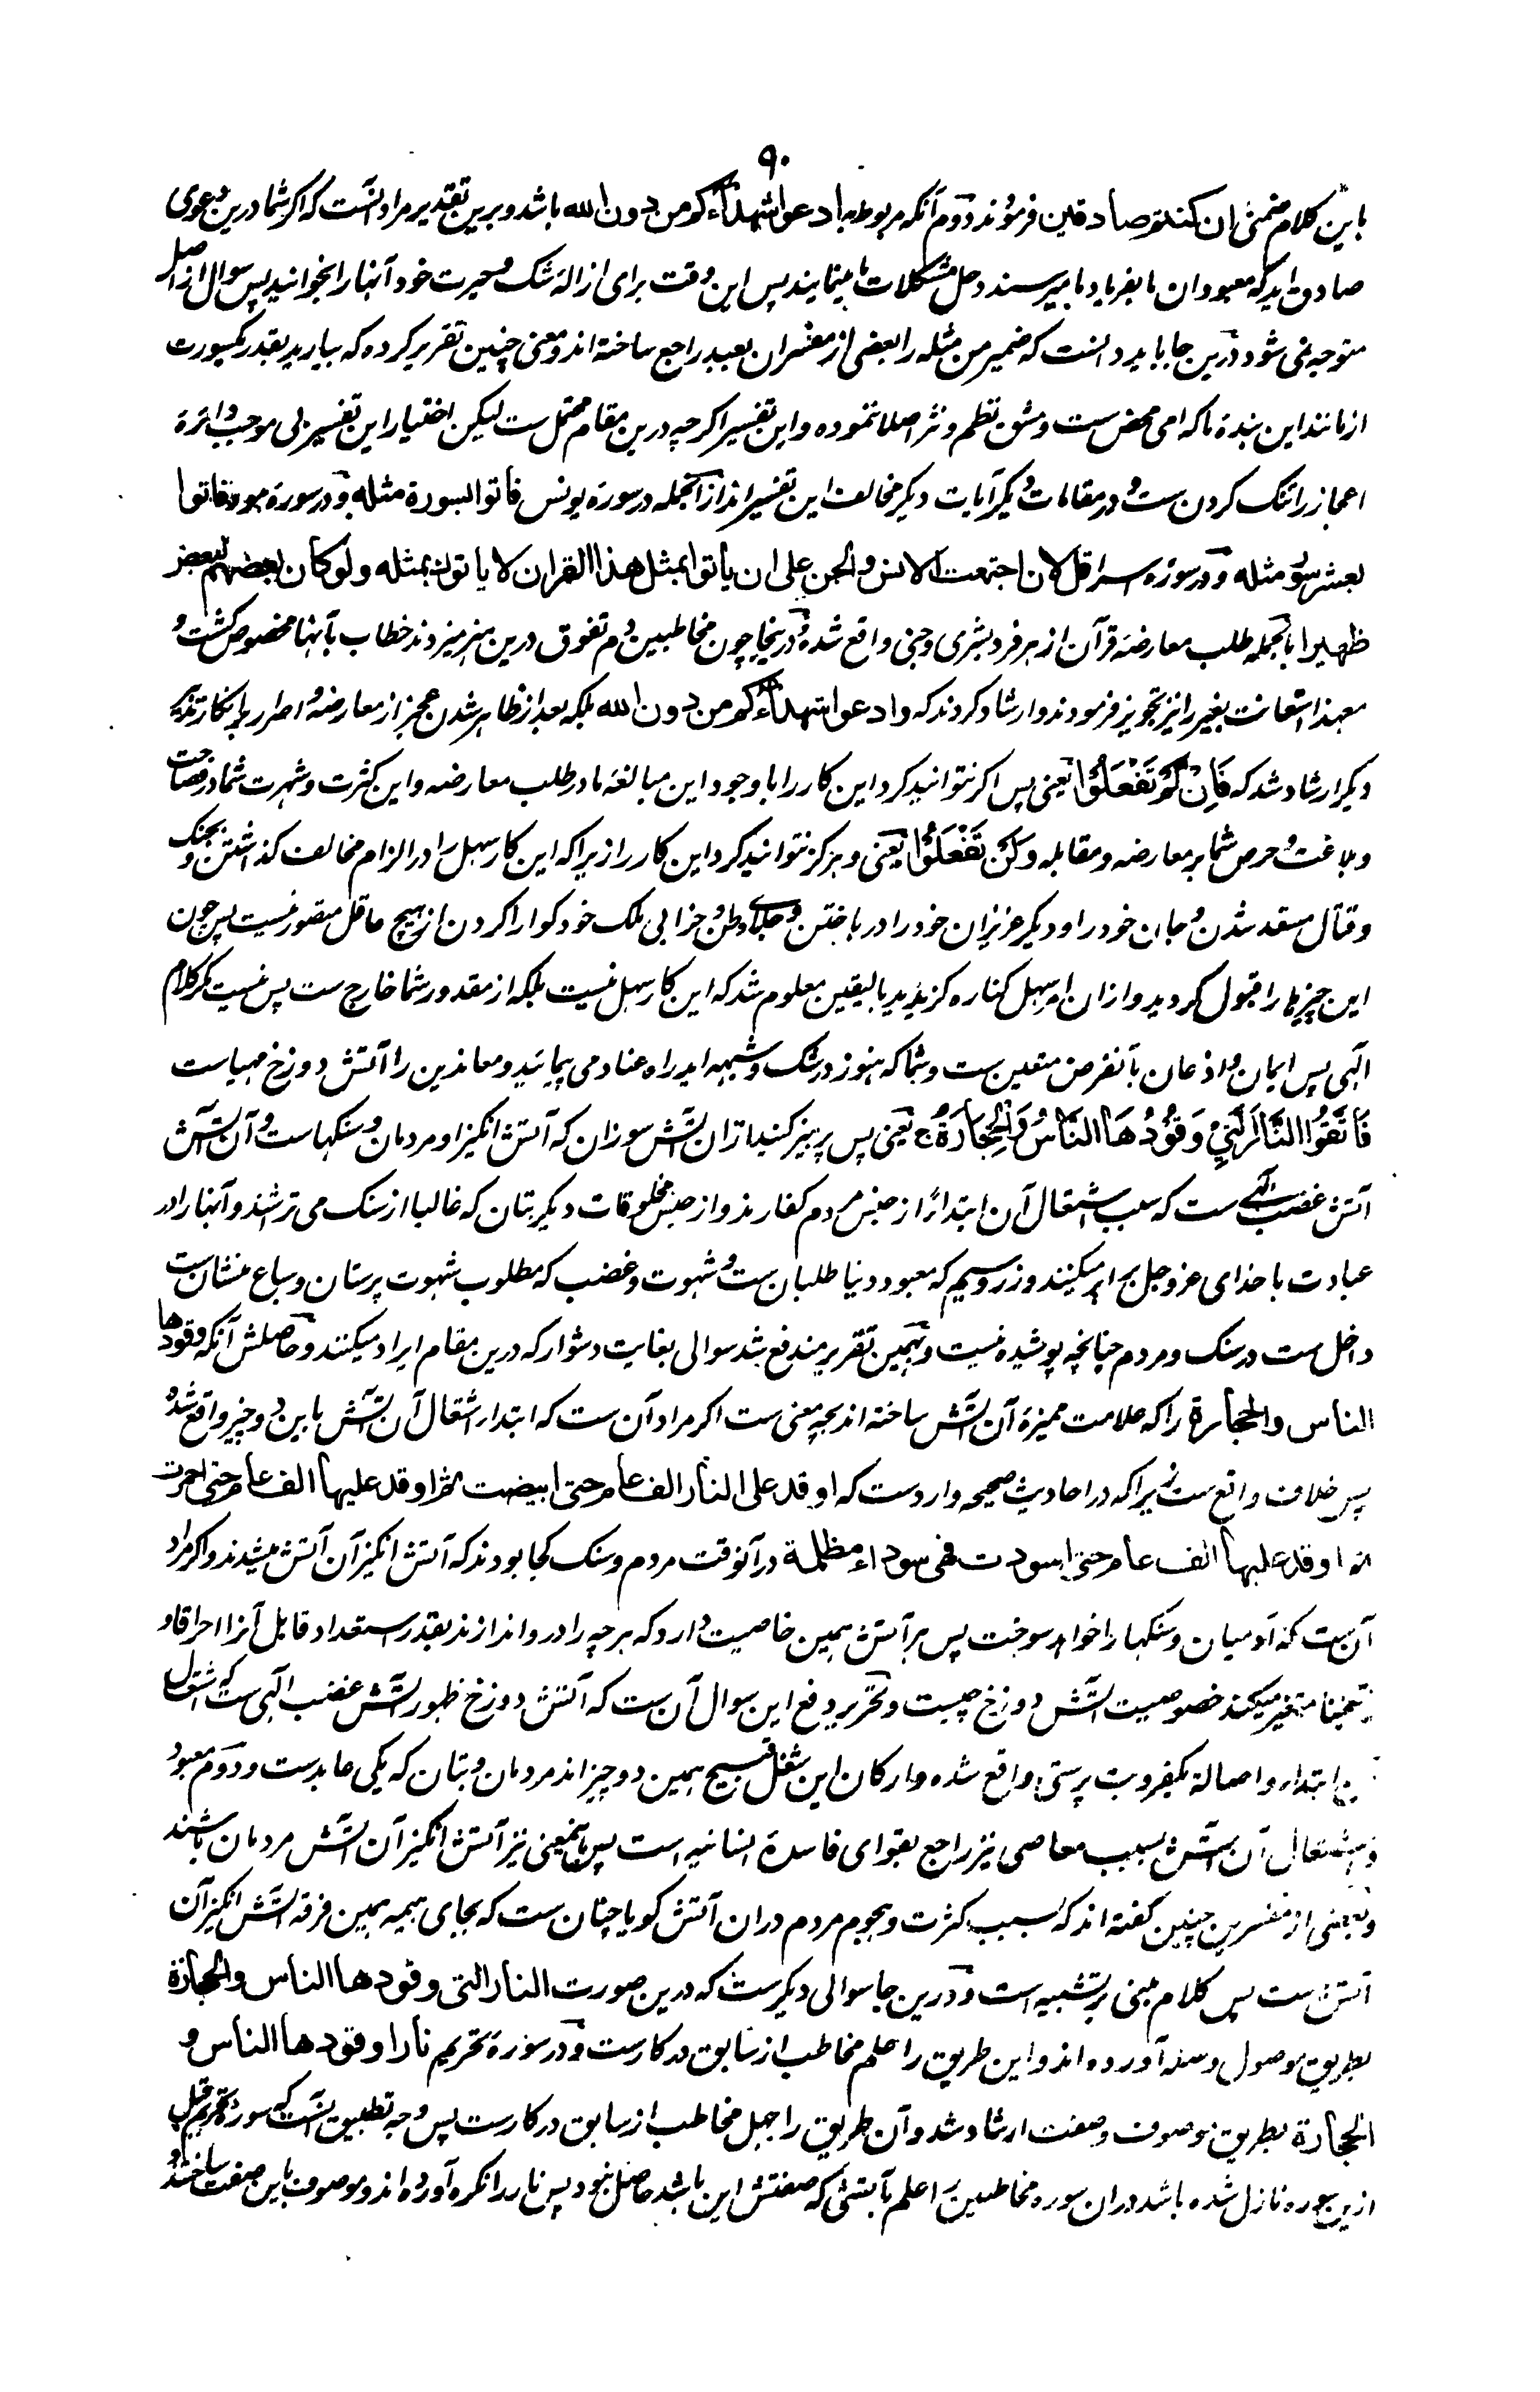 ۹۰
باین کلام ضمنی ان کنتم صادقین فرمودند دوم آنکه مربوط به ادعوا شهداءکم من دون الله باشد و برین تقدیر مراد آنست که اگر شما درین دعوی
صادق اید که معبودان ما بفریاد ما میرسند و حل مشکلات ما مینمایند پس این وقت برای ازالهٔ شک و حیرت خود آنها را بخوانید پس سوال از اصل
متوجه نمی شود و درین جا باید دانست که ضمیر من مثله را بعضی از مفسران بعبد راجع ساخته اند و معنی چنین تقریر کرده که بیارید بقدر یکسورت
از مانند این بندهٔ ما که امی محض ست و مشق نظم و نثر اصلا ننموده و این تفسیر اگرچه درین مقام محتمل ست لیکن اختیار این تفسیر بی موجب دائرهٔ
اعجاز را تنگ کردن ست و در مقامات دیگر آیات دیگر مخالف این تفسیر اند ازانجمله در سورهٔ یونس فاتوا بسورة مثله و در سورهٔ هود فاتوا
بعشر سور مثله و در سورهٔ اسرا قل لئن اجتمعت الانس والجن علی ان یاتوا بمثل هذا القران لا یاتون بمثله ولو کان بعضهم لبعض
ظهیرا بالجمله طلب معارضهٔ قرآن از هر فرد بشری و جنی واقع شده و درینجا چون مخاطبین دم تفوق درین هنر میزدند خطاب بآنها مخصوص گشت و
معهذا استعانت بغیر را نیز تجویز فرمودند و ارشاد کردند که وادعوا شهداءکم من دون الله بلکه بعد از ظاهر شدن عجز از معارضه و اصرار بر انکار
دیگر ارشاد شد که فَاِنْ لَّمْ تَفْعَلُوْا یعنی پس اگر نتوانید کرد این کار را با وجود این مبالغهٔ ما در طلب معارضه و این کثرت و شهرت شما در فصاحت
و بلاغت و حرص شما بر معارضه و مقابله وَلَنْ تَفْعَلُوْا یعنی و هرگز نتوانید کرد این کار را زیرا که این کار سهل را در الزام مخالف گذاشتن و بجنگ
و قتال مستعد شدن و جان خود را و دیگر عزیزان خود را در باختن و جلای وطن و خرابی ملک خود گوارا کردن از هیچ عاقل متصور نیست پس چون
این چیزها را قبول کردید و ازان امر سهل کناره گزیدید بالیقین معلوم شد که این کار سهل نیست بلکه از مقدور شما خارج ست پس نیست مگر کلام
الهی پس ایمان و اذعان بآن فرض متعین ست و شما که هنوز در شک و شبهه اید راه عناد می پیمائید و معاندین را آتش دوزخ مهیاست
فَاتَّقُوا النَّارَ الَّتِیْ وَقُوْدُهَا النَّاسُ وَالْحِجَارَةُ ج یعنی پس پرهیز کنید ازان آتش سوزان که آتش انگیز او مردمان و سنگهاست و آن آتش
آتش غضب الهی ست که سبب اشتعال آن ابتداءً از جنس مردم کفارند و از جنس مخلوقات دیگر بتان که غالبا از سنگ می تراشند و آنها را در
عبادت با خدای عز و جل برابر میکنند و زر و سیم که معبود دنیا طلبان ست و شهوت و غضب که مطلوب شهوت پرستان و سباع منشان ست
داخل ست در سنگ و مردم چنانچه پوشیده نیست و بهمین تقریر مندفع شد سوالی بغایت دشوار که درین مقام ایراد میکنند و حاصلش آنکه وقودها
الناس والحجارة را که علامت ممیزهٔ آن آتش ساخته اند بچه معنی ست اگر مراد آن ست که ابتدار اشتعال آن آتش باین دو چیز واقع شده
پس خلاف واقع ست زیرا که در احادیث صحیحه وارد ست که اوقد علی النار الف عام حتی ابیضت ثم اوقد علیها الف عام حتی احمرت
ثم اوقد علیها الف عام حتی اسودت فهی سوداء مظلمة درآنوقت مردم و سنگ کجا بودند که آتش انگیز آن آتش میشدند و اگر مراد
آن ست که آدمیان و سنگها را خواهد سوخت پس هر آتش همین خاصیت دارد که هرچه را درو اندازند بقدر استعداد قابل آنرا احراقا و
متغیر میکند خصوصیت آتش دوزخ چیست و تحریر دفع این سوال آن ست که آتش دوزخ ظهور آتش غضب الهی ست که اشتعال
ابتداء و اصالة بکفر و بت پرستی واقع شده و ارکان این شغل قبیح همین دو چیز اند مردمان و بتان که یکی عابدست و دوم معبود
و اشتعال آن آتش بسبب معاصی نیز راجع بقوای فاسدهٔ انسانیه است پس باینمعنی نیز آتش انگیز آن آتش مردمان باشند
و بعضی از مفسرین چنین گفته اند که بسبب کثرت و هجوم مردم دران آتش گویا چنان ست که بجای هیمه همین فرقه آتش انگیز آن
آتش ست پس کلام مبنی بر تشبیه است و درین جا سوالی دیگرست که درین صورت النار التی وقودها الناس والحجارة
بطریق موصول و صله آورده اند و این طریق را علم مخاطب از سابق درکارست و در سورهٔ تحریم نارا وقودها الناس و
الحجارة بطریق موصوف و صفت ارشاد شد و آن طریق را جهل مخاطب از سابق درکارست پس وجه تطبیق آنست که سورهٔ تحریم قبل
ازین سوره نازل شده باشد دران سوره مخاطبین را علم بآتشی که صفتش این باشد حاصل نبود پس نار را نکره آورده اند و موصوف باین صفت ساخته و